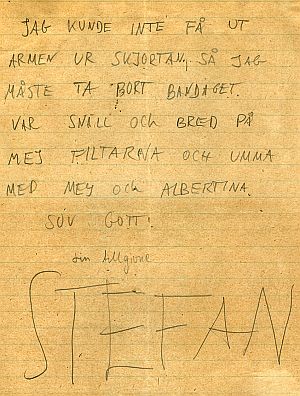 JAG KUNDE INTE FÅ UT
ARMEN UR SKJORTAN, SÅ JAG
MÅSTE TA BORT BANDAGET.
VAR SNÄLL OCH BRED PÅ
MEJ FILTARNA OCH UMMA
MED MEJ OCH ALBERTINA.
SOV GOTT!
din tillgivne
STEFAN